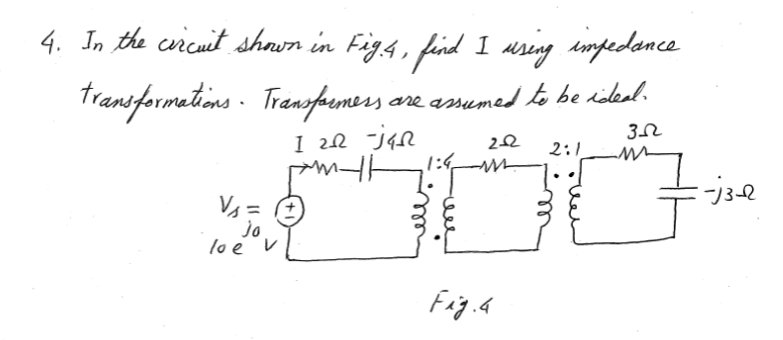 4. In the circuit shown in Fig.4, find I using impedance
transformations. Transformers are assumed to be ideal.
I 2Ω -j4Ω
1:4
2Ω
2:1
3Ω
-j3Ω
Vs =
10e^j0 V
+
Fig.4